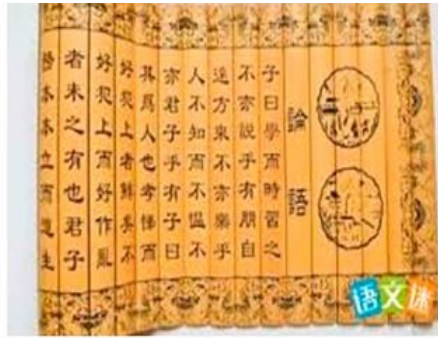 論語
子曰學而時習之
不亦說乎有朋自
遠方來不亦樂乎
人不知而不慍不
亦君子乎有子曰
其爲人也孝悌而
好犯上者鮮矣不
好犯上而好作亂
者未之有也君子
務本本立而道生
语文迷